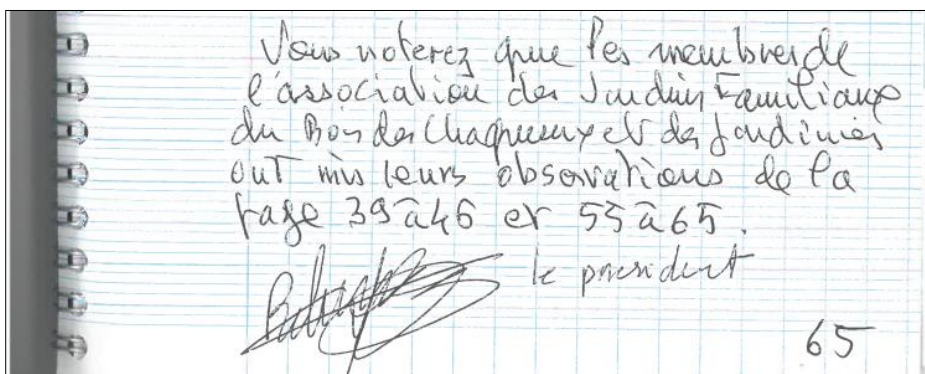 Vous noterez que les membres de
l'association des Jardins Familiaux
du Bois des Chaqueux et des Jardiniers
ont mis leurs observations de la
page 39 à 46 et 55 à 65.
le president
65